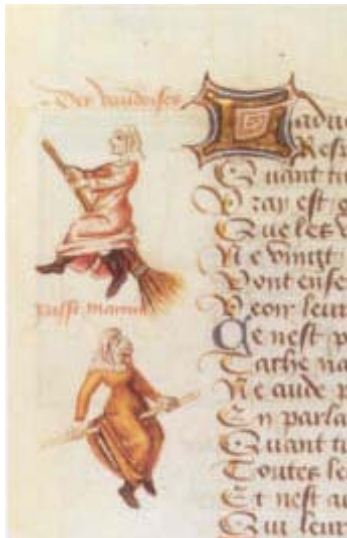 Des vaudoises
Quant tu
Vray est q
Que les v
Ne vingt
Vont ense
Veoir leur
Ce nest p
Tache na
Ne aude p
En parla
Quant tu
Toutes le
Et nest au
Qui leur